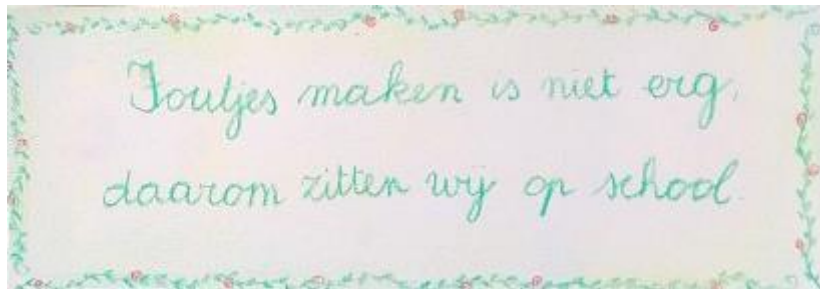 Foutjes maken is niet erg,
daarom zitten wij op school.